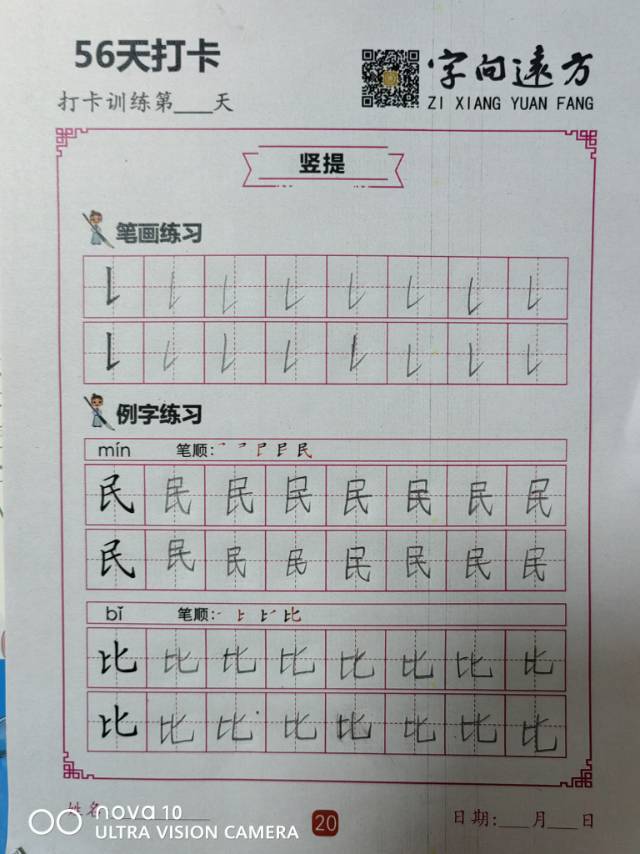 56天打卡
打卡训练第___天
字向遠方
ZI XIANG YUAN FANG
竖提
笔画练习
例字练习
mín 笔顺:
民 民 民 民 民 民 民 民
民 民 民 民 民 民 民 民
bǐ 笔顺: 比
比 比 比 比 比 比 比 比
比 比 比 比 比 比 比 比
姓名
20
日期:___月___日
nova 10
ULTRA VISION CAMERA